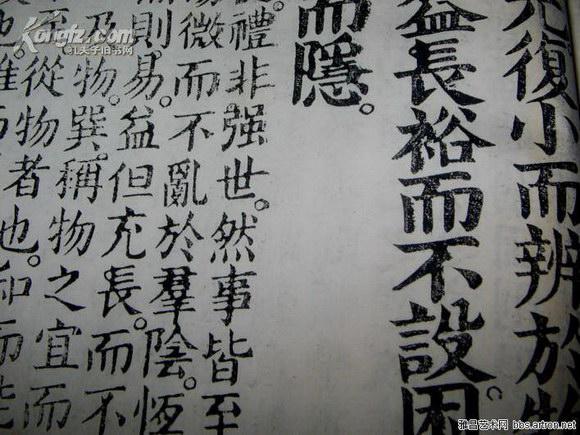 光復小而辨於物
益長裕而不設。困
而隱。
禮非强世。然事皆至
陽微而不亂於羣陰。恆
則易。益但充長。而不
及物。巽。稱物之宜而
至從物者也。和而能
也。雖
Kongfz.com
孔夫子旧书网
雅昌艺术网 bbs.artron.net